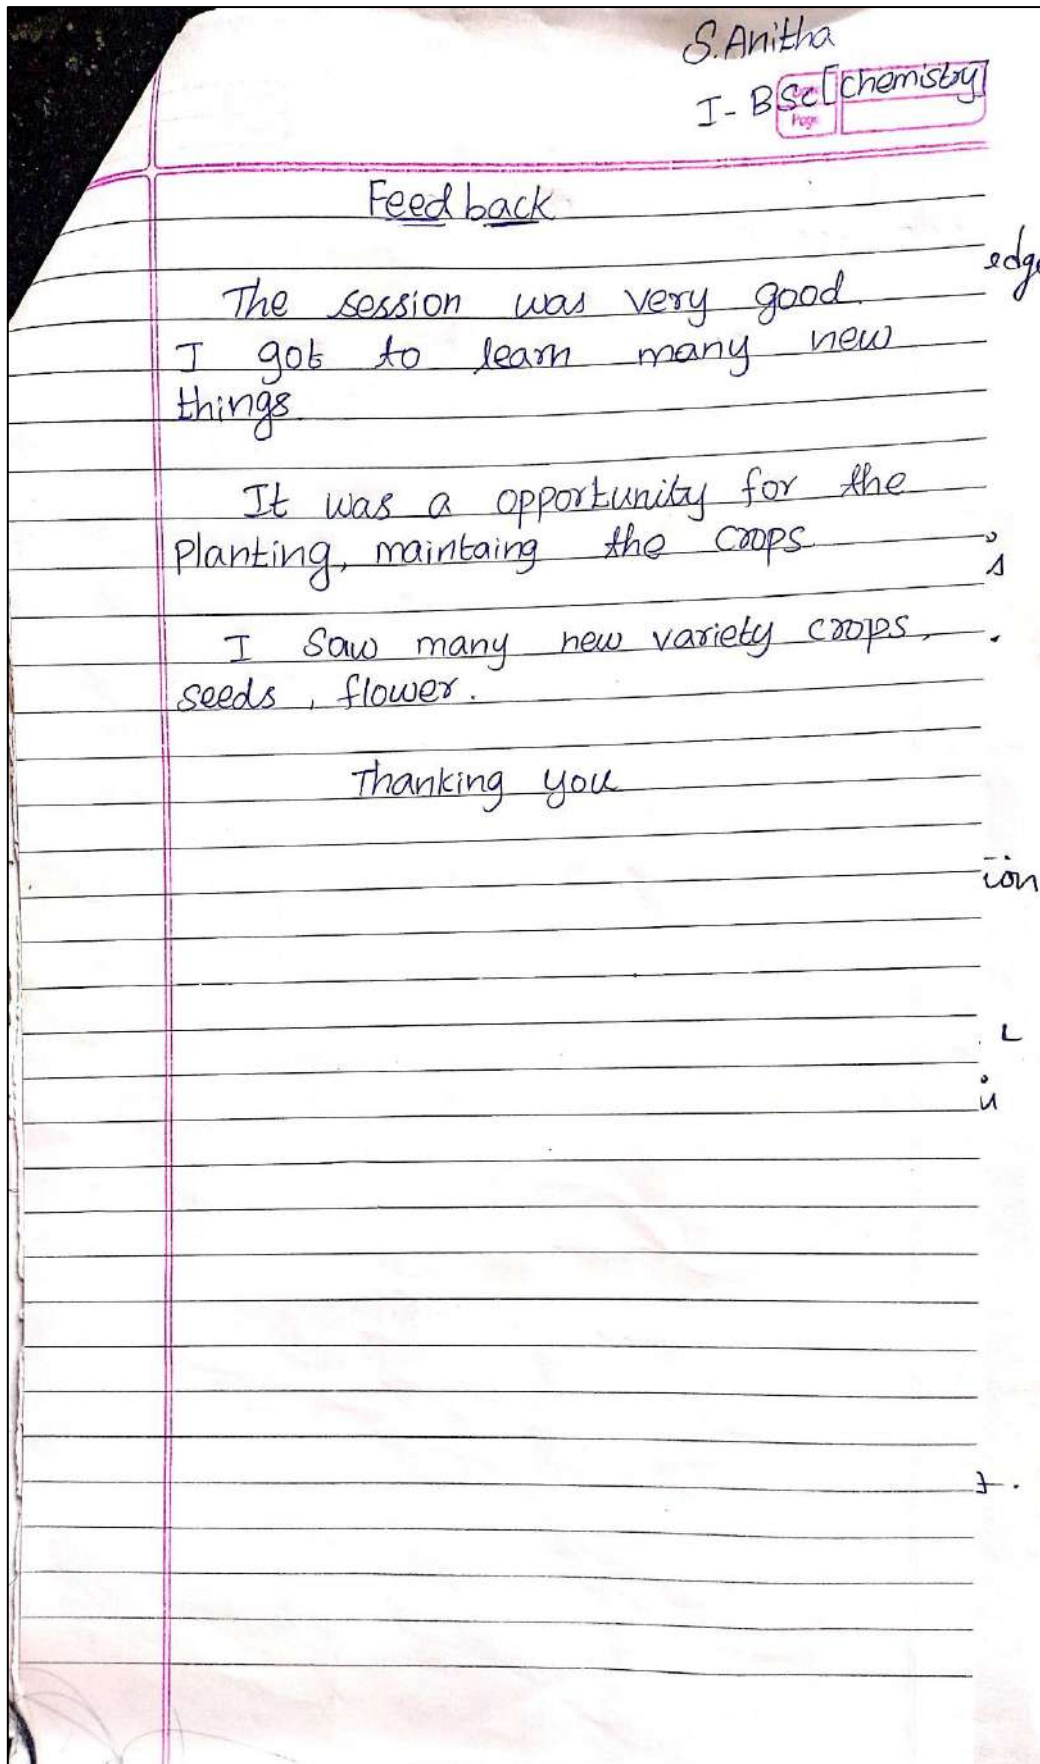 S.Anitha
I - BSc [chemistry]
Page
Feedback
The session was very good.
I got to learn many new
things
It was a opportunity for the
Planting, maintaing the crops
I Saw many new variety crops,
seeds, flower.
Thanking you
edge
ion